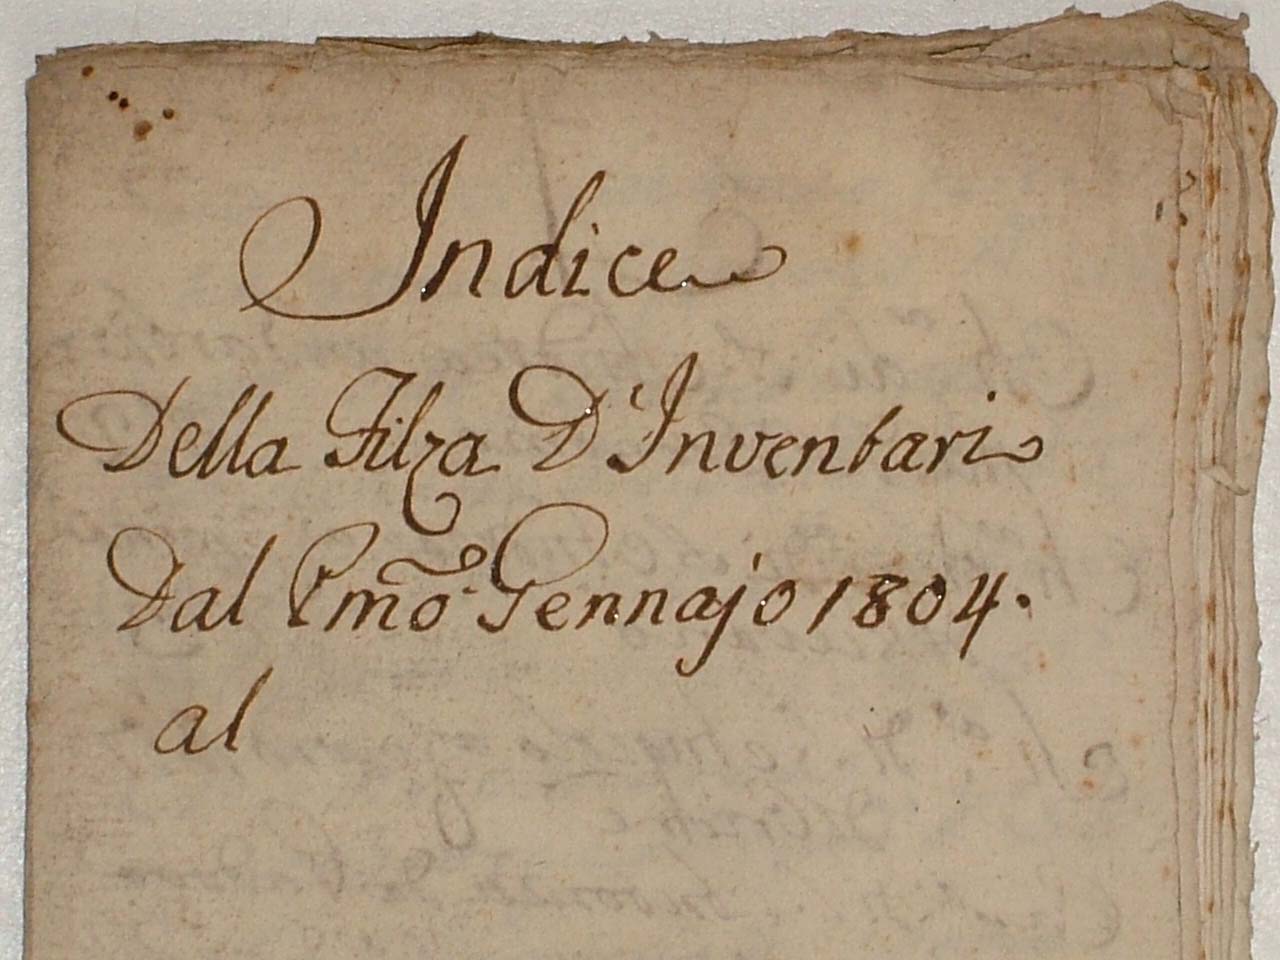 Indice
Della Filza D'Inventari
Dal Pmo. Gennajo 1804.
al